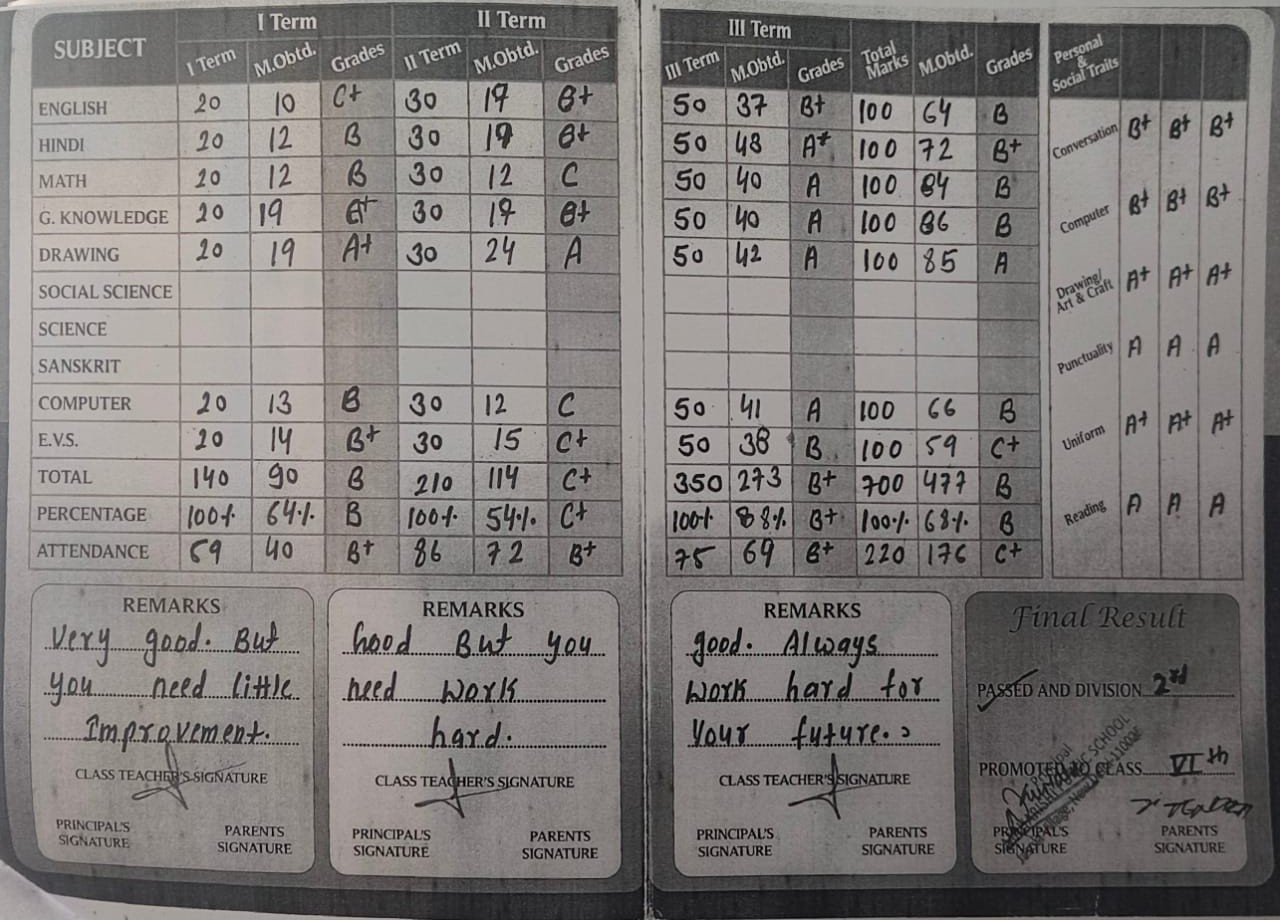 SUBJECT I Term II Term III Term Total Marks M.Obtd. Grades Personal & Social Traits
I Term M.Obtd. Grades II Term M.Obtd. Grades III Term M.Obtd. Grades
ENGLISH 20 10 C+ 30 17 B+ 50 37 B+ 100 64 B
HINDI 20 12 B 30 B+ 50 48 A+ 100 72 B+ Conversation B+ B+ B+
MATH 20 12 B 30 12 C 50 40 A 100 B
G. KNOWLEDGE 20 19 30 17 B+ 50 40 A 100 B Computer B+ B+ B+
DRAWING 20 19 A+ 30 24 A 50 42 A 100 85 A
SOCIAL SCIENCE Drawing/ Art & Craft A+ A+ A+
SCIENCE
SANSKRIT Punctuality A A A
COMPUTER 20 13 B 30 12 C 50 41 A 100 66 B
E.V.S. 20 14 B+ 30 15 C+ 50 38 B 100 59 C+ Uniform A+ A+ A+
TOTAL 140 90 B 210 114 C+ 350 273 B+ 700 477 B
PERCENTAGE 100% 64% B 100% 54% C+ 100% 88% B+ 100% 68% B Reading A A A
ATTENDANCE 59 40 B+ 86 72 B+ 75 69 B+ 220 176 C+
REMARKS
Very good. But
you need little
Improvement.
CLASS TEACHER'S SIGNATURE
PRINCIPAL'S SIGNATURE PARENTS SIGNATURE
REMARKS
Good But you
need work
hard.
CLASS TEACHER'S SIGNATURE
PRINCIPAL'S SIGNATURE PARENTS SIGNATURE
REMARKS
good. Always
work hard for
your future.
CLASS TEACHER'S SIGNATURE
PRINCIPAL'S SIGNATURE PARENTS SIGNATURE
Final Result
PASSED AND DIVISION 2nd
PROMOTED TO CLASS VIth
Principal
SCHOOL
PRINCIPAL'S SIGNATURE PARENTS SIGNATURE